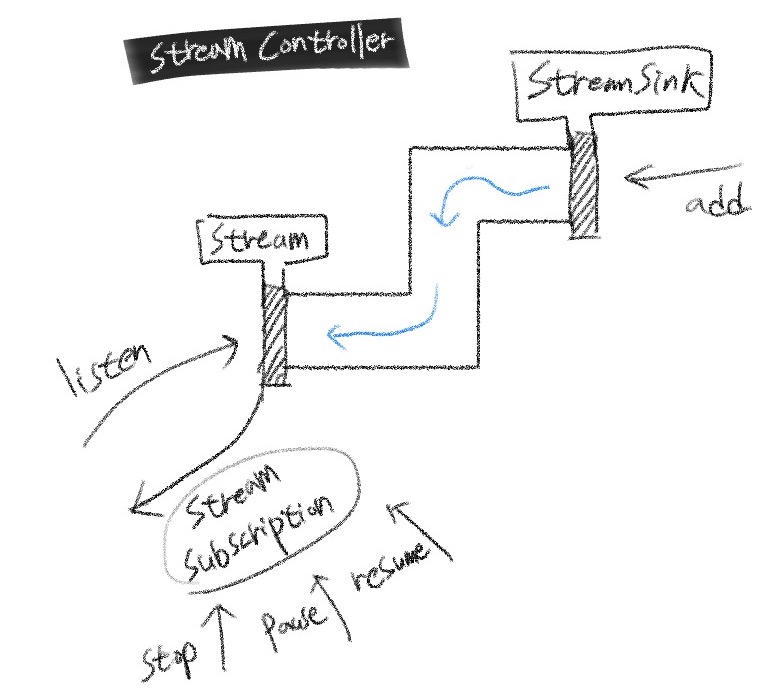 Stream Controller
StreamSink
add
Stream
listen
Stream
subscription
resume
pause
stop